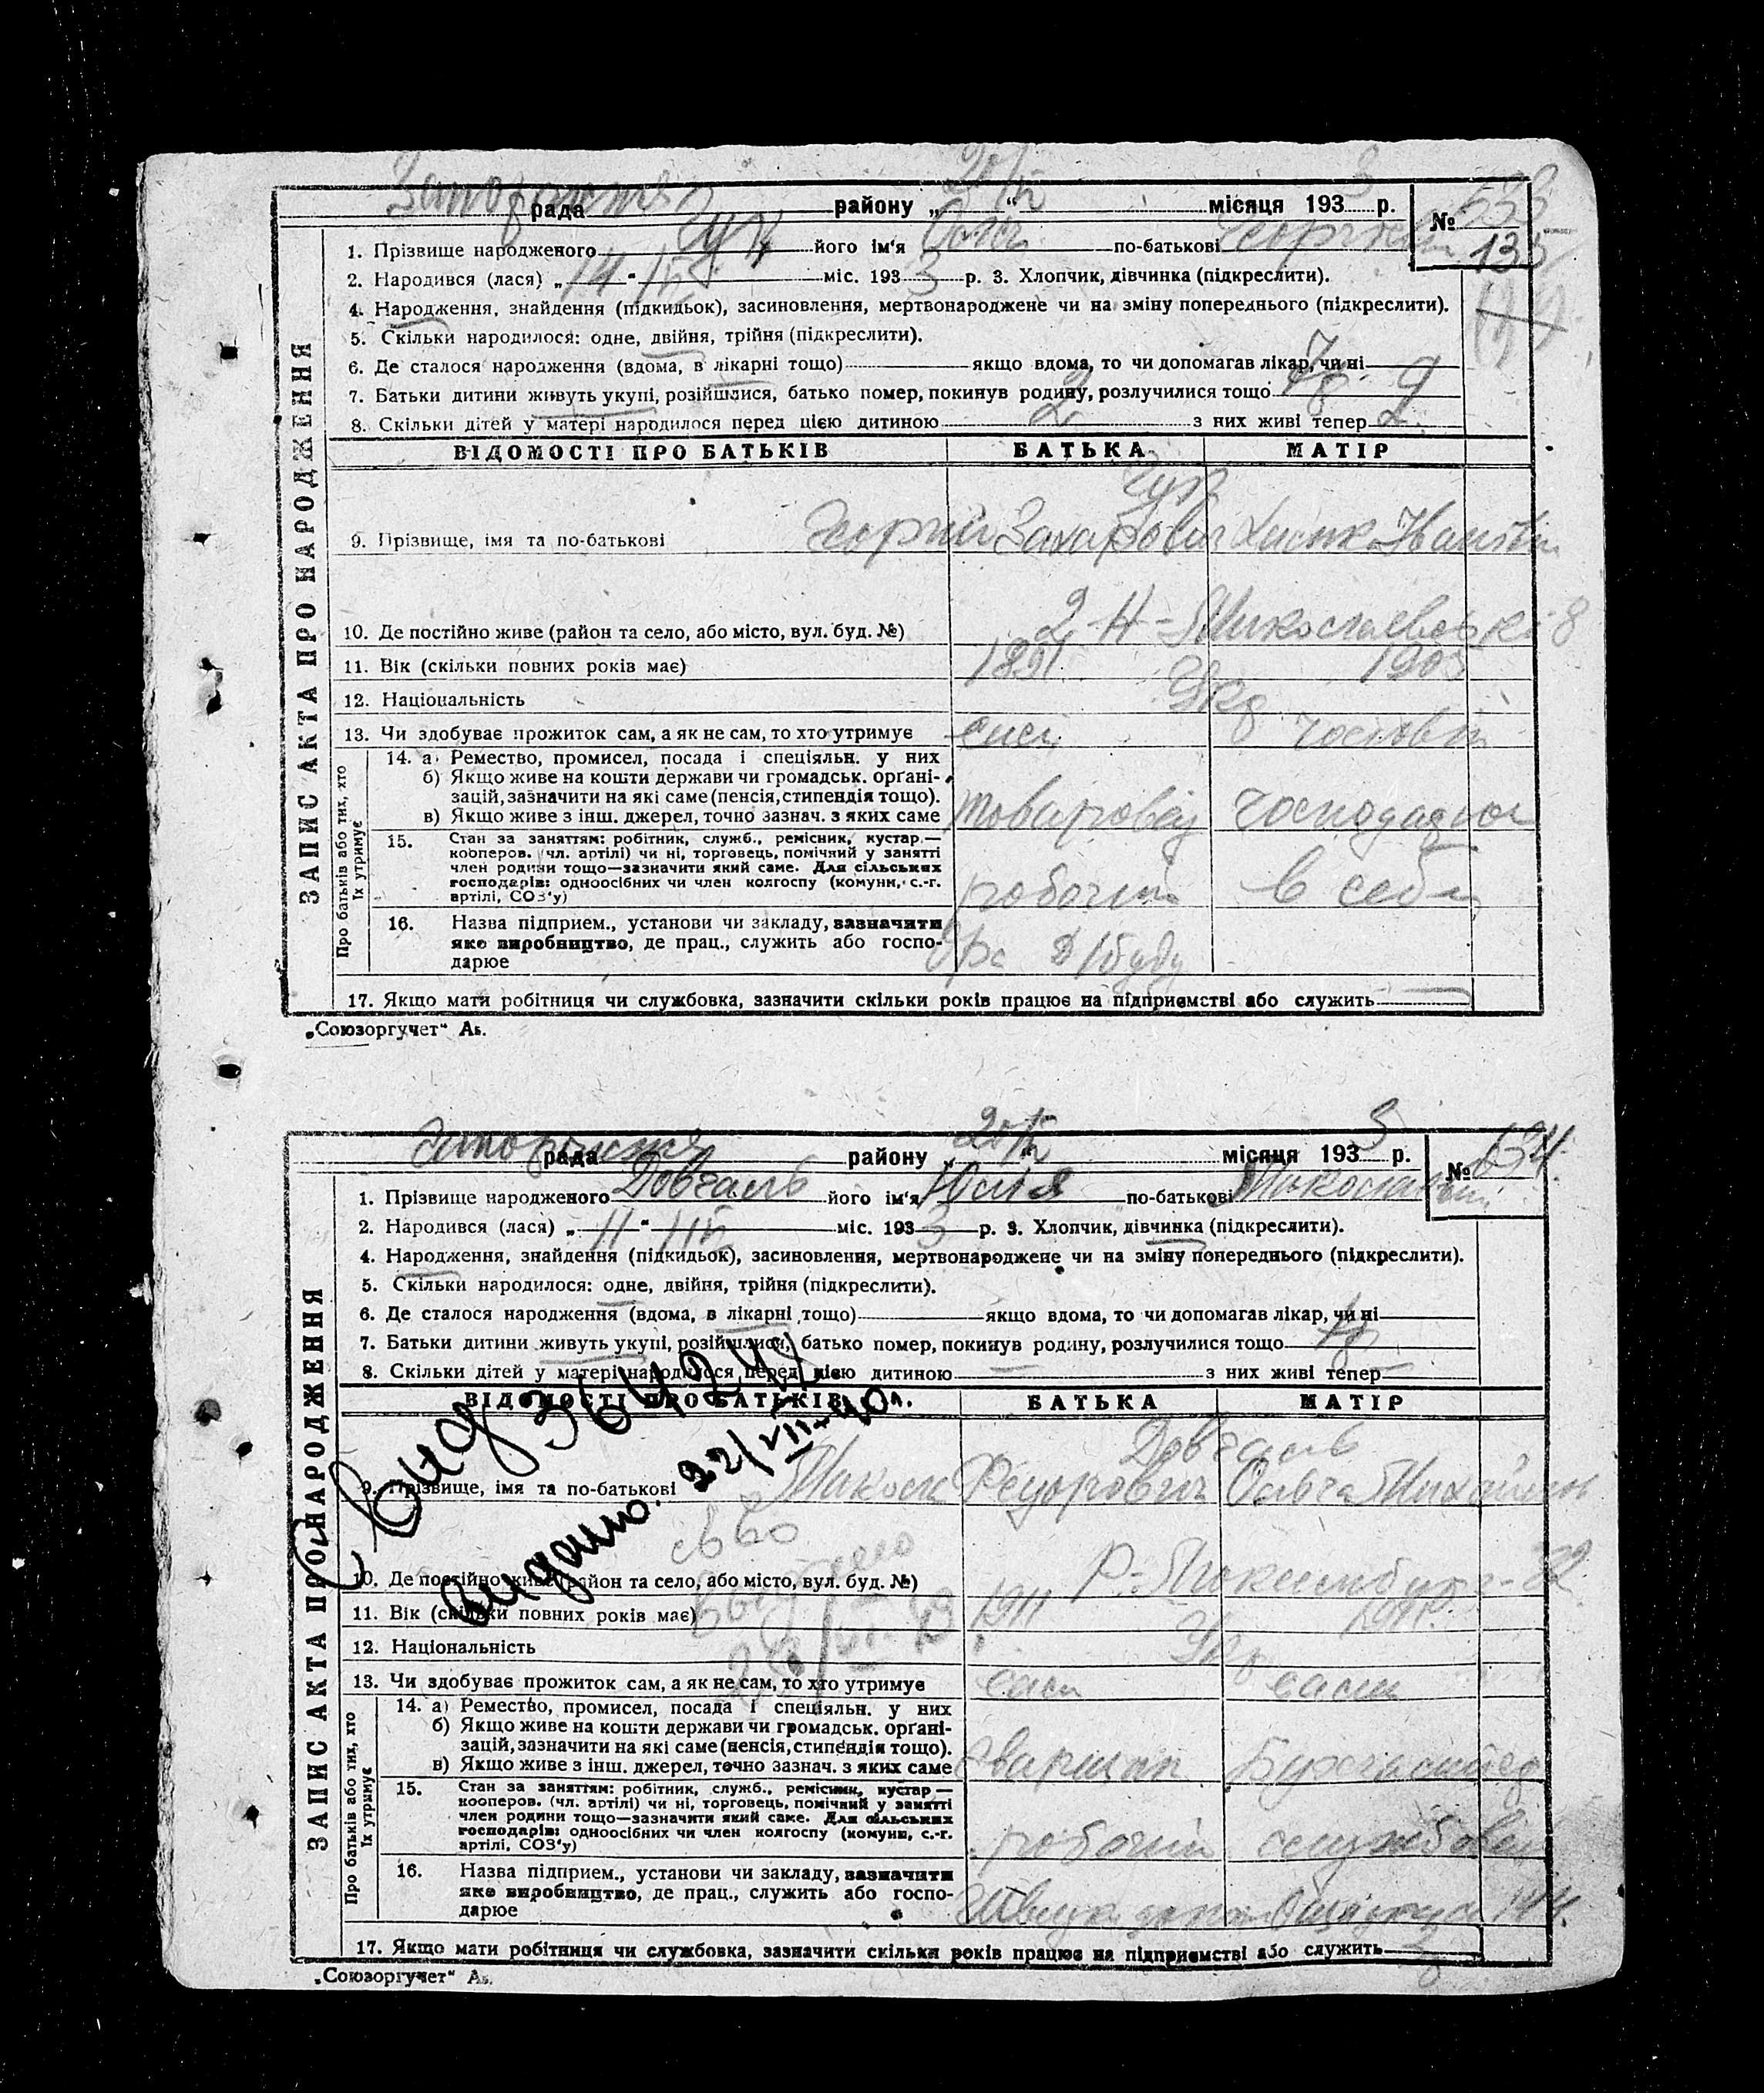 ЗАПИС АКТА ПРО НАРОДЖЕННЯ
рада району „ “ місяця 193 3 р. №
135
1. Прізвище народженого його ім‘я по-батькові
2. Народився (лася) „ 14 “ міс. 193 3 р. 3. Хлопчик, дівчинка (підкреслити).
4. Народження, знайдення (підкидьок), засиновлення, мертвонароджене чи на зміну попереднього (підкреслити).
5. Скільки народилося: одне, двійня, трійня (підкреслити).
6. Де сталося народження (вдома, в лікарні тощо) якщо вдома, то чи допомагав лікар, чи ні
7. Батьки дитини живуть укупі, розійшлися, батько помер, покинув родину, розлучилися тощо
8. Скільки дітей у матері народилося перед цією дитиною 2 з них живі тепер 2
ВІДОМОСТІ ПРО БАТЬКІВ БАТЬКА МАТІР
9. Прізвище, імя та по-батькові Георгий Захарович
10. Де постійно живе (район та село, або місто, вул. буд. №)
11. Вік (скільки повних років має) 1891 1903
12. Національність Укр
13. Чи здобуває прожиток сам, а як не сам, то хто утримує
Про батьків або тих, хто їх утримує
14. а) Ремество, промисел, посада і спеціяльн. у них
б) Якщо живе на кошти держави чи громадськ. органі-
зацій, зазначити на які саме (пенсія, стипендія тощо).
в) Якщо живе з інш. джерел, точно зазнач. з яких саме товаровед
15. Стан за заняттям: робітник, служб., ремісник, кустар —
кооперов. (чл. артілі) чи ні, торговець, помічний у занятті
член родини тощо—зазначити який саме. Для сільських
господарів: одноосібних чи член колгоспу (комуни, с.-г.
артілі, СОЗ‘у) робочий
16. Назва підприєм., установи чи закладу, зазначити
яке виробництво, де прац., служить або госпо-
дарює
17. Якщо мати робітниця чи службовка, зазначити скільки років працює на підприємстві або служить
„Союзоргучет“ Ак.
ЗАПИС АКТА ПРО НАРОДЖЕННЯ
рада району „ “ місяця 193 3 р. № 634
1. Прізвище народженого Довгаль його ім‘я Юлія по-батькові
2. Народився (лася) „ 11 “ міс. 193 3 р. 3. Хлопчик, дівчинка (підкреслити).
4. Народження, знайдення (підкидьок), засиновлення, мертвонароджене чи на зміну попереднього (підкреслити).
5. Скільки народилося: одне, двійня, трійня (підкреслити).
6. Де сталося народження (вдома, в лікарні тощо) якщо вдома, то чи допомагав лікар, чи ні
7. Батьки дитини живуть укупі, розійшлися, батько помер, покинув родину, розлучилися тощо
8. Скільки дітей у матері народилося перед цією дитиною з них живі тепер
ВІДОМОСТІ ПРО БАТЬКІВ БАТЬКА МАТІР
Довгаль
9. Прізвище, імя та по-батькові Микола Федорович Ольга
Видано. 22/VII-40
10. Де постійно живе (район та село, або місто, вул. буд. №)
11. Вік (скільки повних років має) 1911 1911
12. Національність Укр
13. Чи здобуває прожиток сам, а як не сам, то хто утримує сам сама
Про батьків або тих, хто їх утримує
14. а) Ремество, промисел, посада і спеціяльн. у них
б) Якщо живе на кошти держави чи громадськ. органі-
зацій, зазначити на які саме (пенсія, стипендія тощо).
в) Якщо живе з інш. джерел, точно зазнач. з яких саме
15. Стан за заняттям: робітник, служб., ремісник, кустар —
кооперов. (чл. артілі) чи ні, торговець, помічний у занятті
член родини тощо—зазначити який саме. Для сільських
господарів: одноосібних чи член колгоспу (комуни, с.-г.
артілі, СОЗ‘у) робочий службов
16. Назва підприєм., установи чи закладу, зазначити
яке виробництво, де прац., служить або госпо-
дарює
17. Якщо мати робітниця чи службовка, зазначити скільки років працює на підприємстві або служить
„Союзоргучет“ Ак.